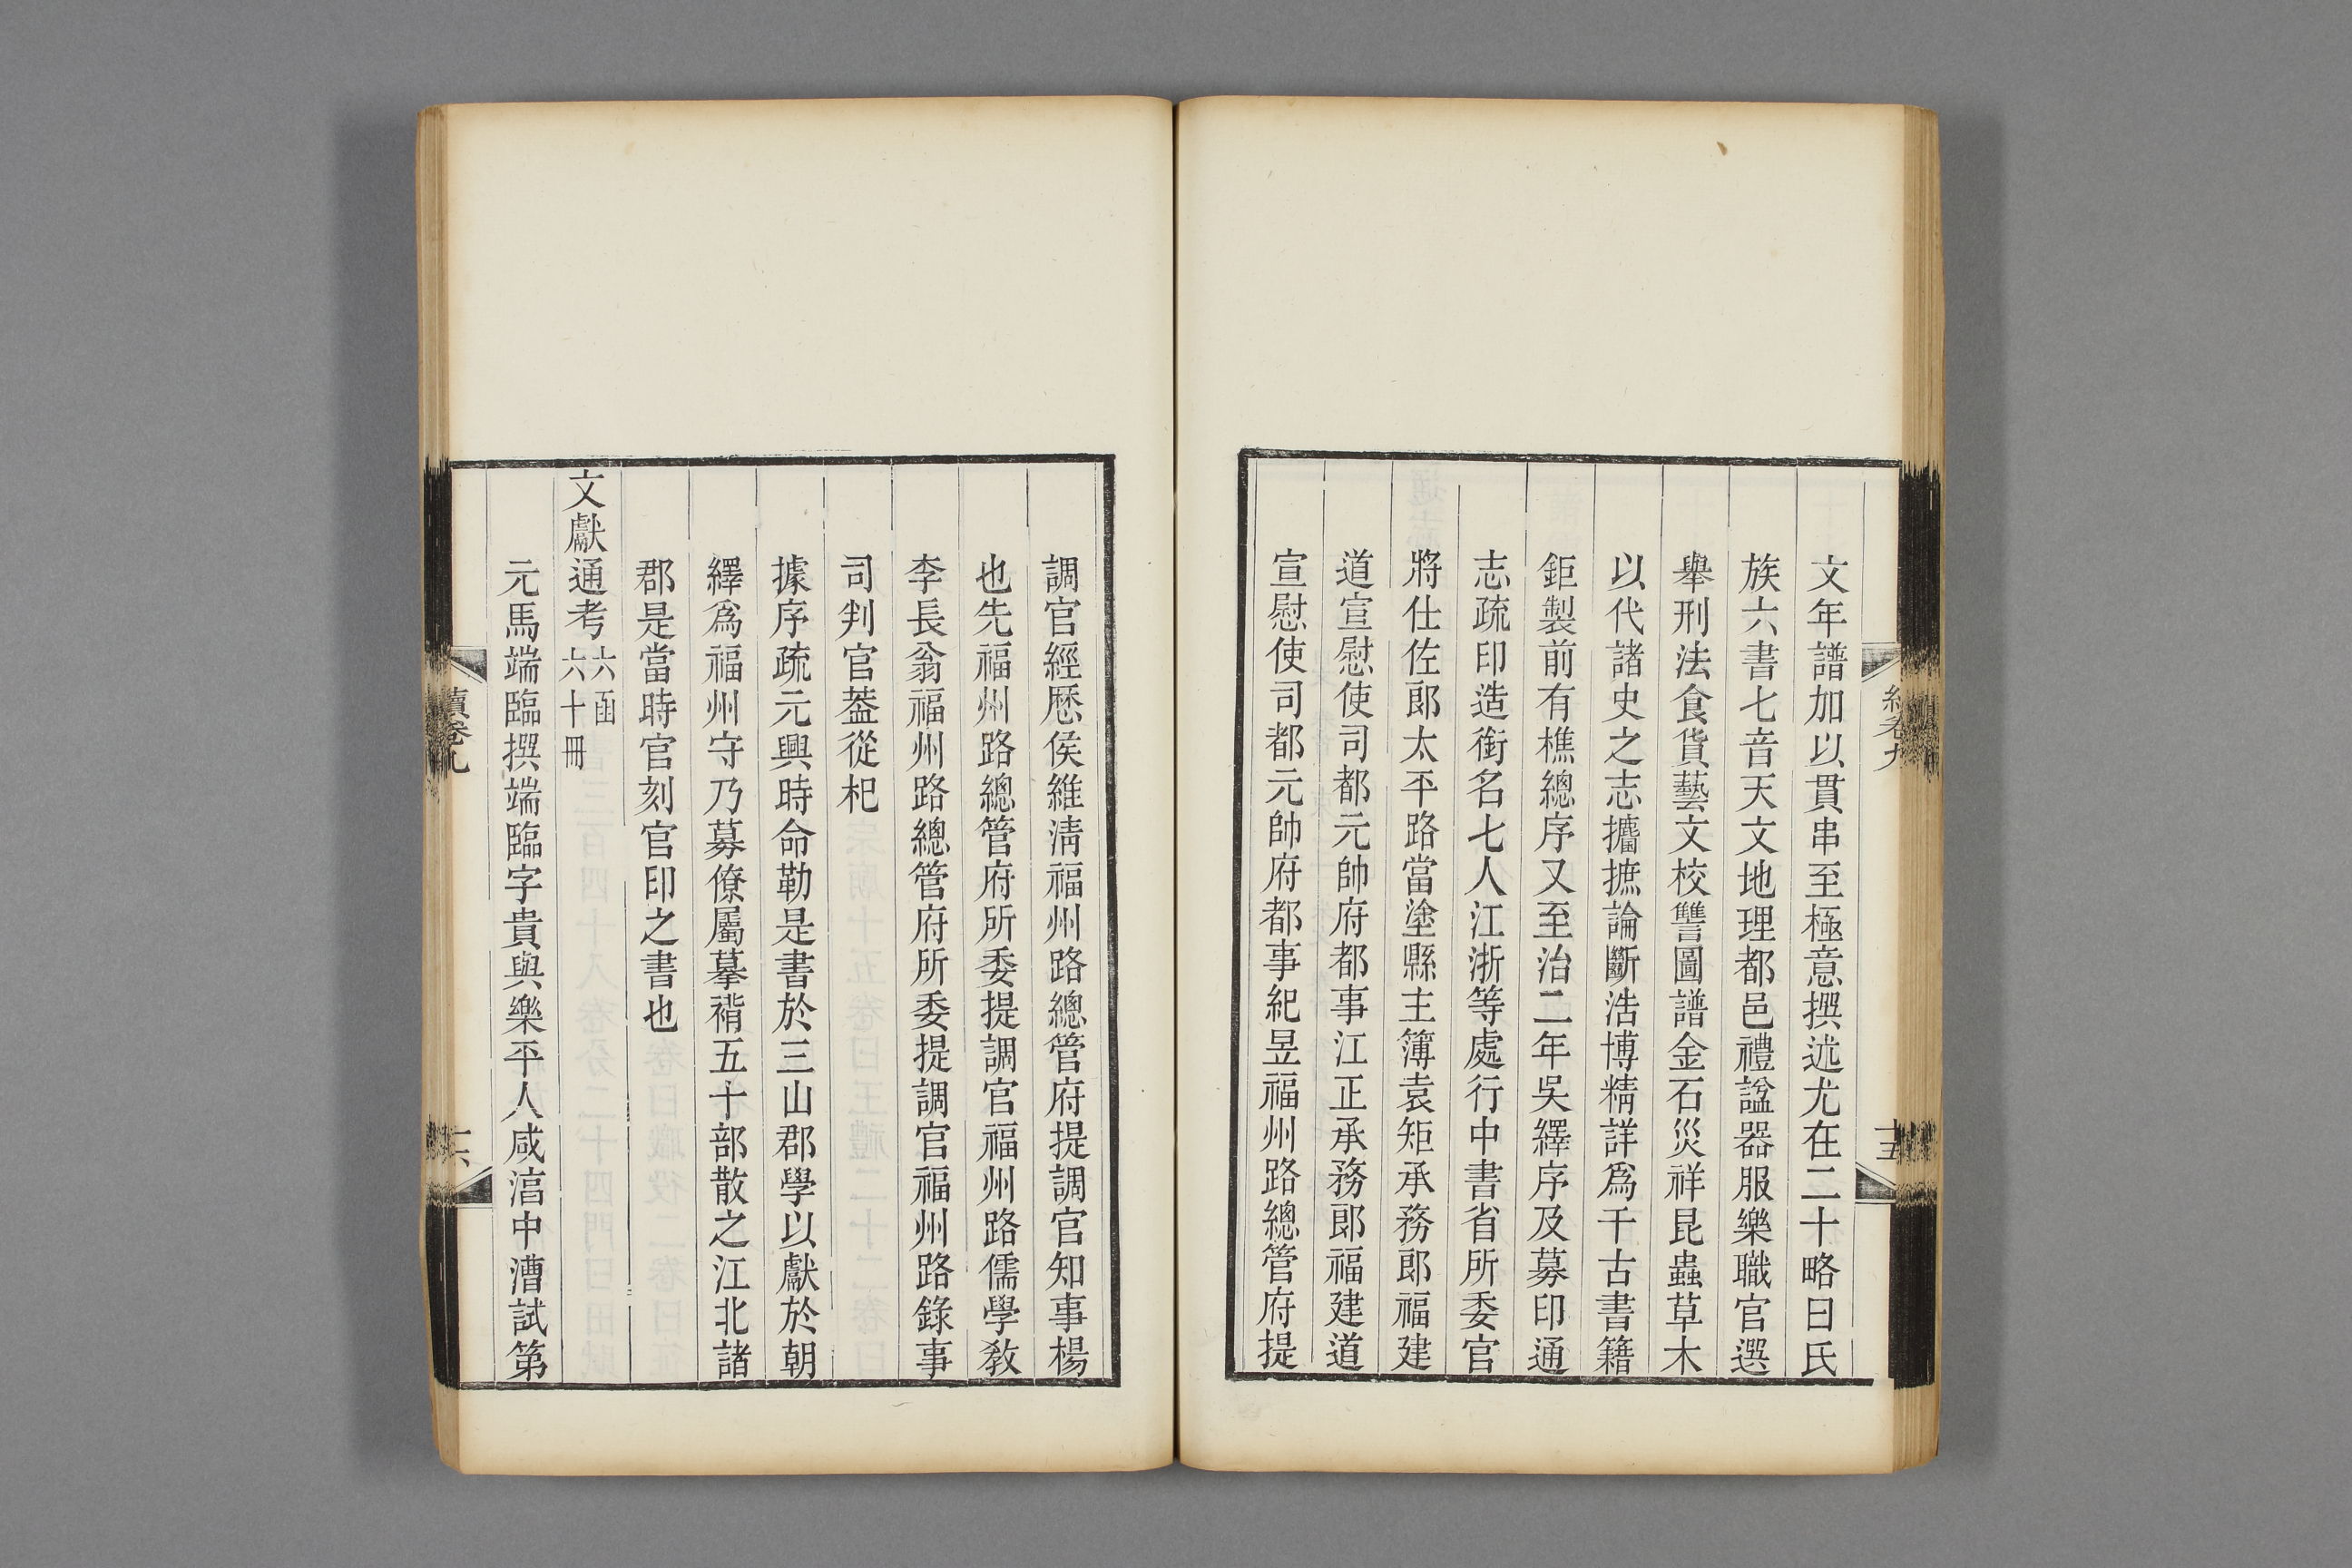 文年譜加以貫串至極意撰述尤在二十略曰氏
族六書七音天文地理都邑禮諡器服樂職官選
舉刑法食貨藝文校讐圖譜金石災祥昆蟲草木
以代諸史之志攟摭論斷浩博精詳爲千古書籍
鉅製前有樵總序又至治二年吳繹序及募印通
志疏印造銜名七人江浙等處行中書省所委官
將仕佐郎太平路當塗縣主簿袁矩承務郎福建
道宣慰使司都元帥府都事江正承務郎福建道
宣慰使司都元帥府都事紀昱福州路總管府提
調官經歷侯維淸福州路總管府提調官知事楊
也先福州路總管府所委提調官福州路儒學敎
李長翁福州路總管府所委提調官福州路錄事
司判官葢從杞
據序疏元興時命勒是書於三山郡學以獻於朝
繹爲福州守乃募僚屬摹褙五十部散之江北諸
郡是當時官刻官印之書也
文獻通考六函
六十冊
元馬端臨撰端臨字貴與樂平人咸淳中漕試第
續卷九
十六